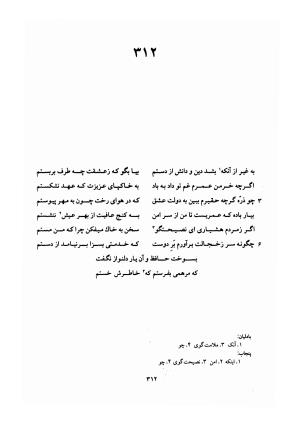 ۳۱۲
به غیر از آنکه۱ بشد دین و دانش از دستم بیا بگو که زعشقت چه طرف بربستم
اگرچه خرمن عمرم غم تو داد به باد به خاکپای عزیزت که عهد نشکستم
۳ چو ذرّه گرچه حقیرم ببین به دولت عشق که در هوای رخت چون به مهر پیوستم
بیار باده که عمریست تا من از سر امن به کنج عافیت از بهر عیش۲ ننشستم
اگر زمردم هشیاری ای نصیحتگو۳ سخن به خاک میفکن چرا که من مستم
۶ چگونه سر زخجالت برآورم بر دوست که خدمتی بسزا برنیامد از دستم
بسوخت حافظ و آن یار دلنواز نگفت
که مرهمی بفرستم که۴ خاطرش خستم
بامتیان:
۱. آنک ۳. ملامت‌گوی ۴. چو
پنجاب:
۱. اینکه ۲. امن ۳. نصیحت‌گوی ۴. چو
۳۱۲